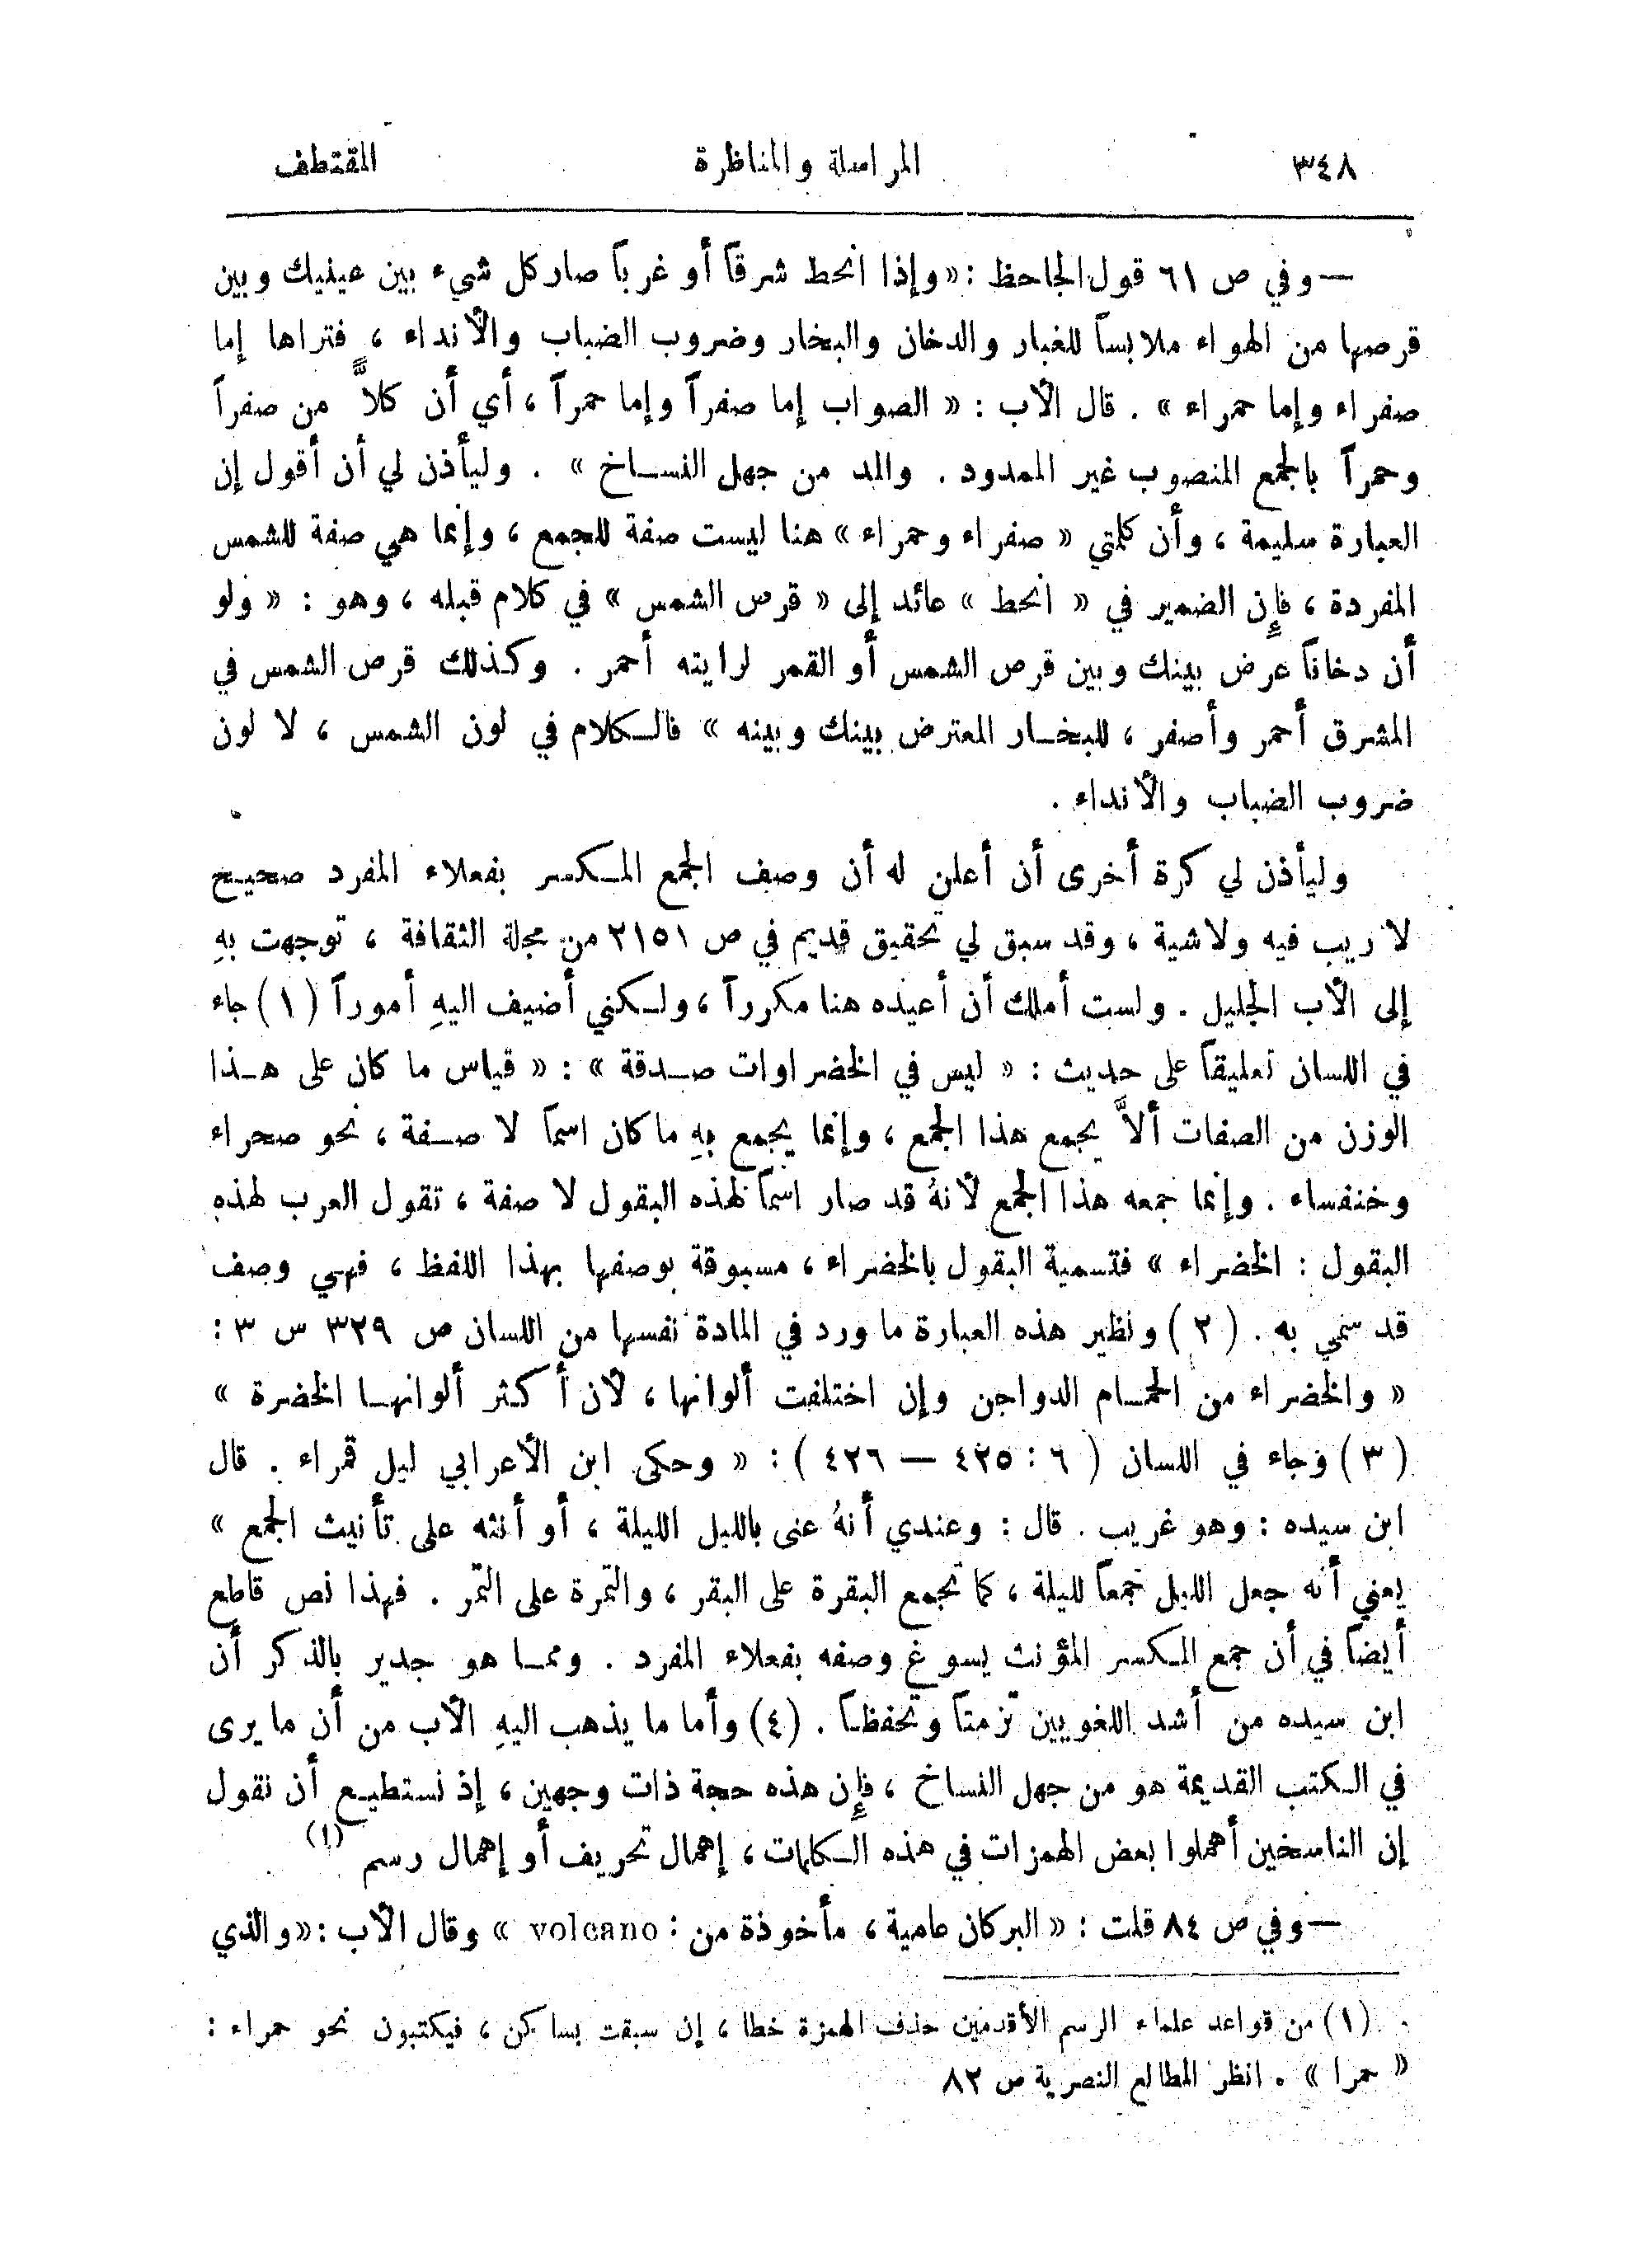 ٣٤٨ المراسلة والمناظرة المقتطف
— وفي ص ٦١ قول الجاحظ : « وإذا انحط شرقاً أو غرباً صار كل شيء بين عينيك وبين
قرصها من الهواء ملابساً للغبار والدخان والبخار وضروب الضباب والأنداء ، فتراها إما
صفراء وإما حمراء » . قال الأب : « الصواب إما صفراً وإما حمراً ، أي أن كلاًّ من صفراً
وحمراً بالجمع المنصوب غير الممدود . والمد من جهل النساخ » . وليأذن لي أن أقول إن
العبارة سليمة ، وأن كلمتي « صفراء وحمراء » هنا ليست صفة للجمع ، وإنما هي صفة للشمس
المفردة ، فإن الضمير في « انحط » عائد إلى « قرص الشمس » في كلام قبله ، وهو : « ولو
أن دخاناً عرض بينك وبين قرص الشمس أو القمر لرايته أحمر . وكذلك قرص الشمس في
المشرق أحمر وأصفر ، للبخار المعترض بينك وبينه » فالكلام في لون الشمس ، لا لون
ضروب الضباب والأنداء .
وليأذن لي كرة أخرى أن أعلن له أن وصف الجمع المكسر بفعلاء المفرد صحيح
لا ريب فيه ولا شية ، وقد سبق لي تحقيق قديم في ص ٢١٥١ من مجلة الثقافة ، توجهت بهِ
إلى الأب الجليل . ولست أملك أن أعيده هنا مكرراً ، ولكني أضيف اليهِ أموراً (١) جاء
في اللسان تعليقاً على حديث : « ليس في الخضراوات صدقة » : « قياس ما كان على هذا
الوزن من الصفات ألاَّ يجمع هذا الجمع ، وإنما يجمع بهِ ما كان اسماً لا صفة ، نحو صحراء
وخنفساء . وإنما جمعه هذا الجمع لأنهُ قد صار اسماً لهذه البقول لا صفة ، تقول العرب لهذه
البقول : الخضراء » فتسمية البقول بالخضراء ، مسبوقة بوصفها بهذا اللفظ ، فهي وصف
قد سمي به . (٢) ونظير هذه العبارة ما ورد في المادة نفسها من اللسان ص ٣٢٩ س ٣ :
« والخضراء من الحمام الدواجن وإن اختلفت ألوانها ، لأن أكثر ألوانها الخضرة »
(٣) وجاء في اللسان ( ٦ : ٤٢٥ — ٤٢٦ ) : « وحكى ابن الأعرابي ليل قمراء . قال
ابن سيده : وهو غريب . قال : وعندي أنهُ عنى بالليل الليلة ، أو أنثه على تأنيث الجمع »
يعني أنه جعل الليل جمعاً لليلة ، كما تجمع البقرة على البقر ، والتمرة على التمر . فهذا نص قاطع
أيضاً في أن جمع المكسر المؤنث يسوغ وصفه بفعلاء المفرد . ومما هو جدير بالذكر أن
ابن سيده من أشد اللغويين تزمتاً وتحفظاً . (٤) وأما ما يذهب اليهِ الأب من أن ما يرى
في الكتب القديمة هو من جهل النساخ ، فإن هذه حجة ذات وجهين ، إذ نستطيع أن نقول
إن الناسخين أهملوا بعض الهمزات في هذه الكلمات ، إهمال تحريف أو إهمال رسم (١)
— وفي ص ٨٤ قلت : « البركان عامية ، مأخوذة من : volcano » وقال الأب : « والذي
(١) من قواعد علماء الرسم الأقدمين حذف الهمزة خطا ، إن سبقت بساكن ، فيكتبون نحو حمراء :
« حمرا » . انظر المطالع النصرية ص ٨٢